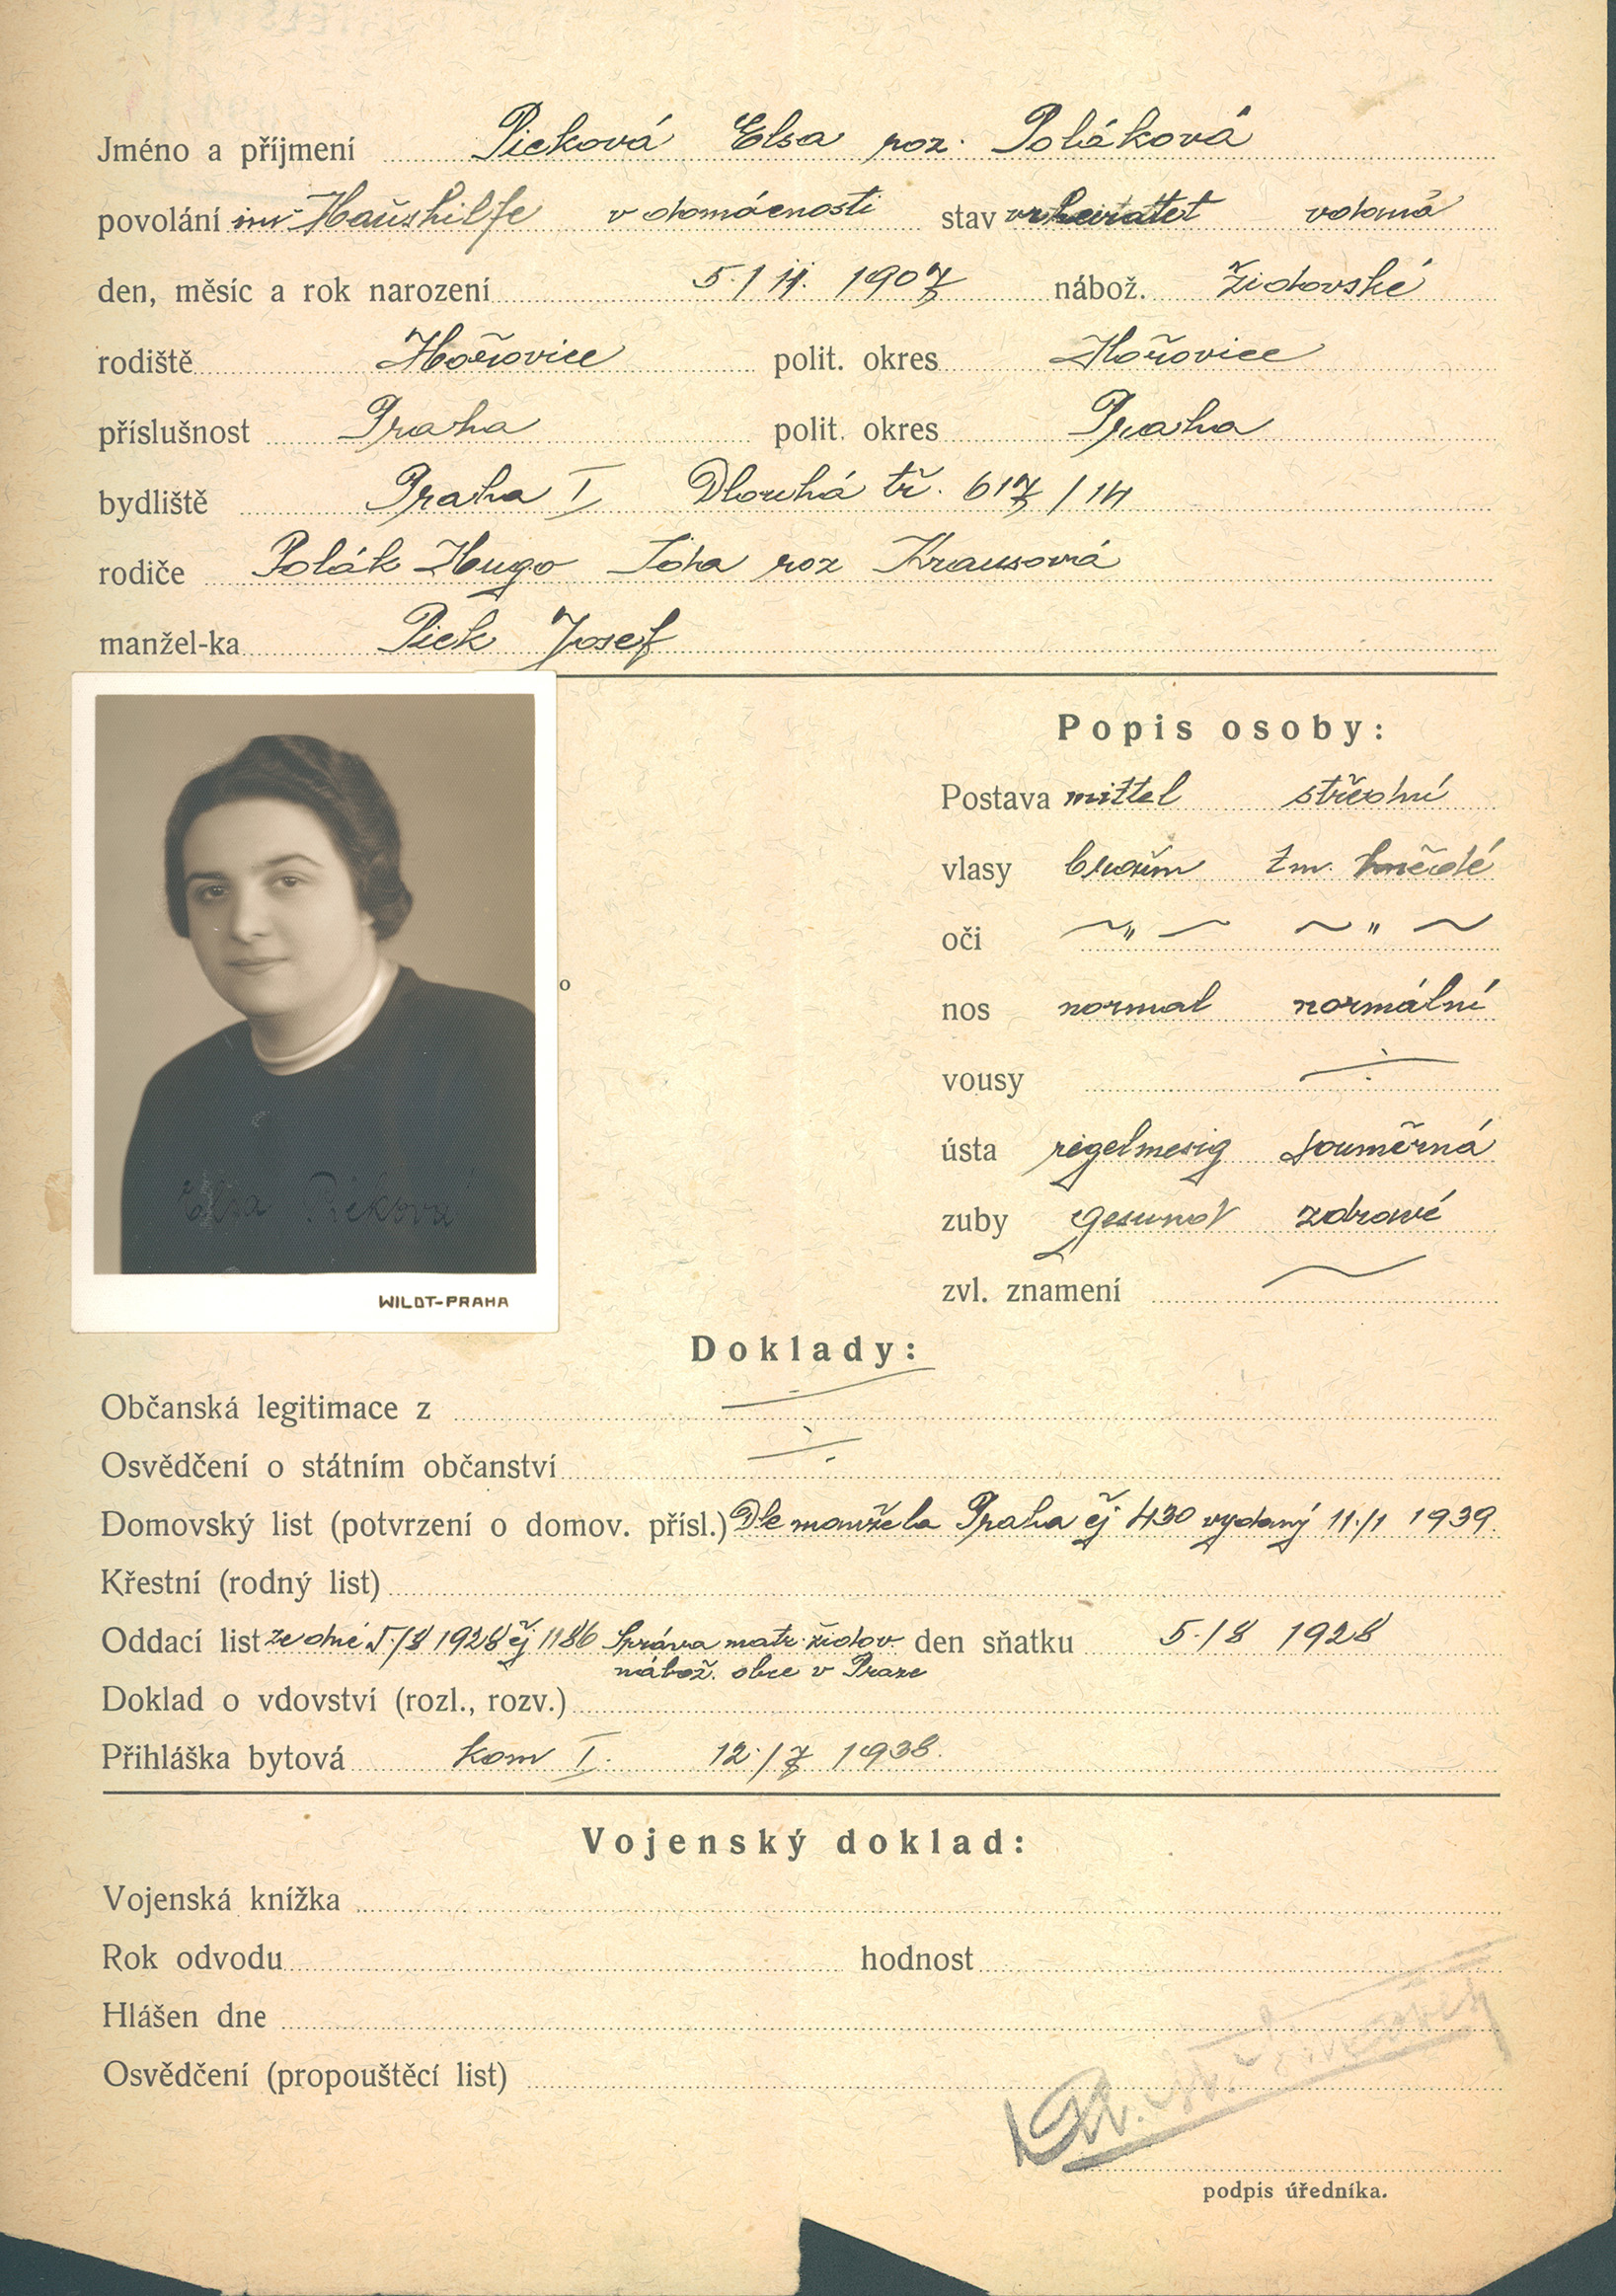 Jméno a příjmení Picková Elsa roz. Poláková
povolání im Haushilfe v domácnosti stav verheiratet vdaná
den, měsíc a rok narození 5./4. 1907 nábož. židovské
rodiště Hořovice polit. okres Hořovice
příslušnost Praha polit. okres Praha
bydliště Praha I Dlouhá tř. 617/14
rodiče Polák Hugo Ida roz Krausová
manžel-ka Pick Josef
Popis osoby:
Postava mittel střední
vlasy braun tm. hnědé
oči ~ " ~ ~ " ~
nos normal normální
vousy
ústa regelmesig souměrná
zuby gesund zdravé
zvl. znamení
Elsa Picková
WILDT-PRAHA
Doklady:
Občanská legitimace z
Osvědčení o státním občanství
Domovský list (potvrzení o domov. přísl.) Dle manžela Praha čj 430 vydaný 11./1 1939.
Křestní (rodný list)
Oddací list ze dne 5./8 1928 čj 1186 Správa matr. židov. den sňatku 5./8 1928
nábož. obce v Praze
Doklad o vdovství (rozl., rozv.)
Přihláška bytová kom I. 12./7 1938.
Vojenský doklad:
Vojenská knížka
Rok odvodu hodnost
Hlášen dne
Osvědčení (propouštěcí list)
podpis úředníka.